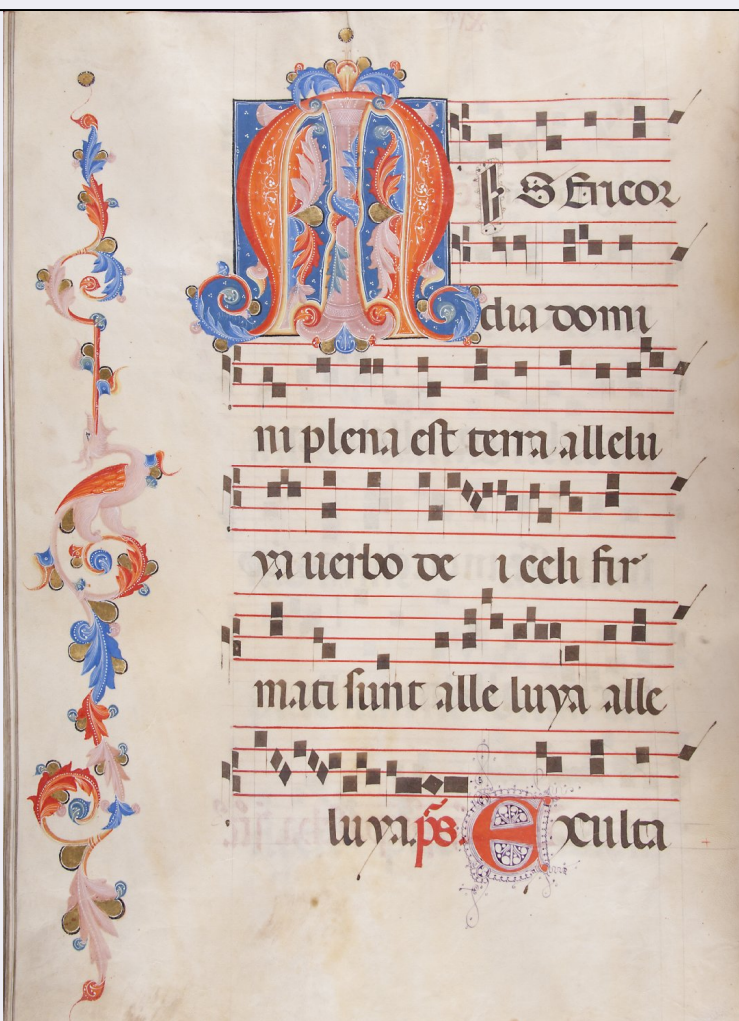 MISERICOR
dia domi
ni plena est terra allelu
ya uerbo de i celi fir
mati sunt alle luya alle
luya. ps Exulta